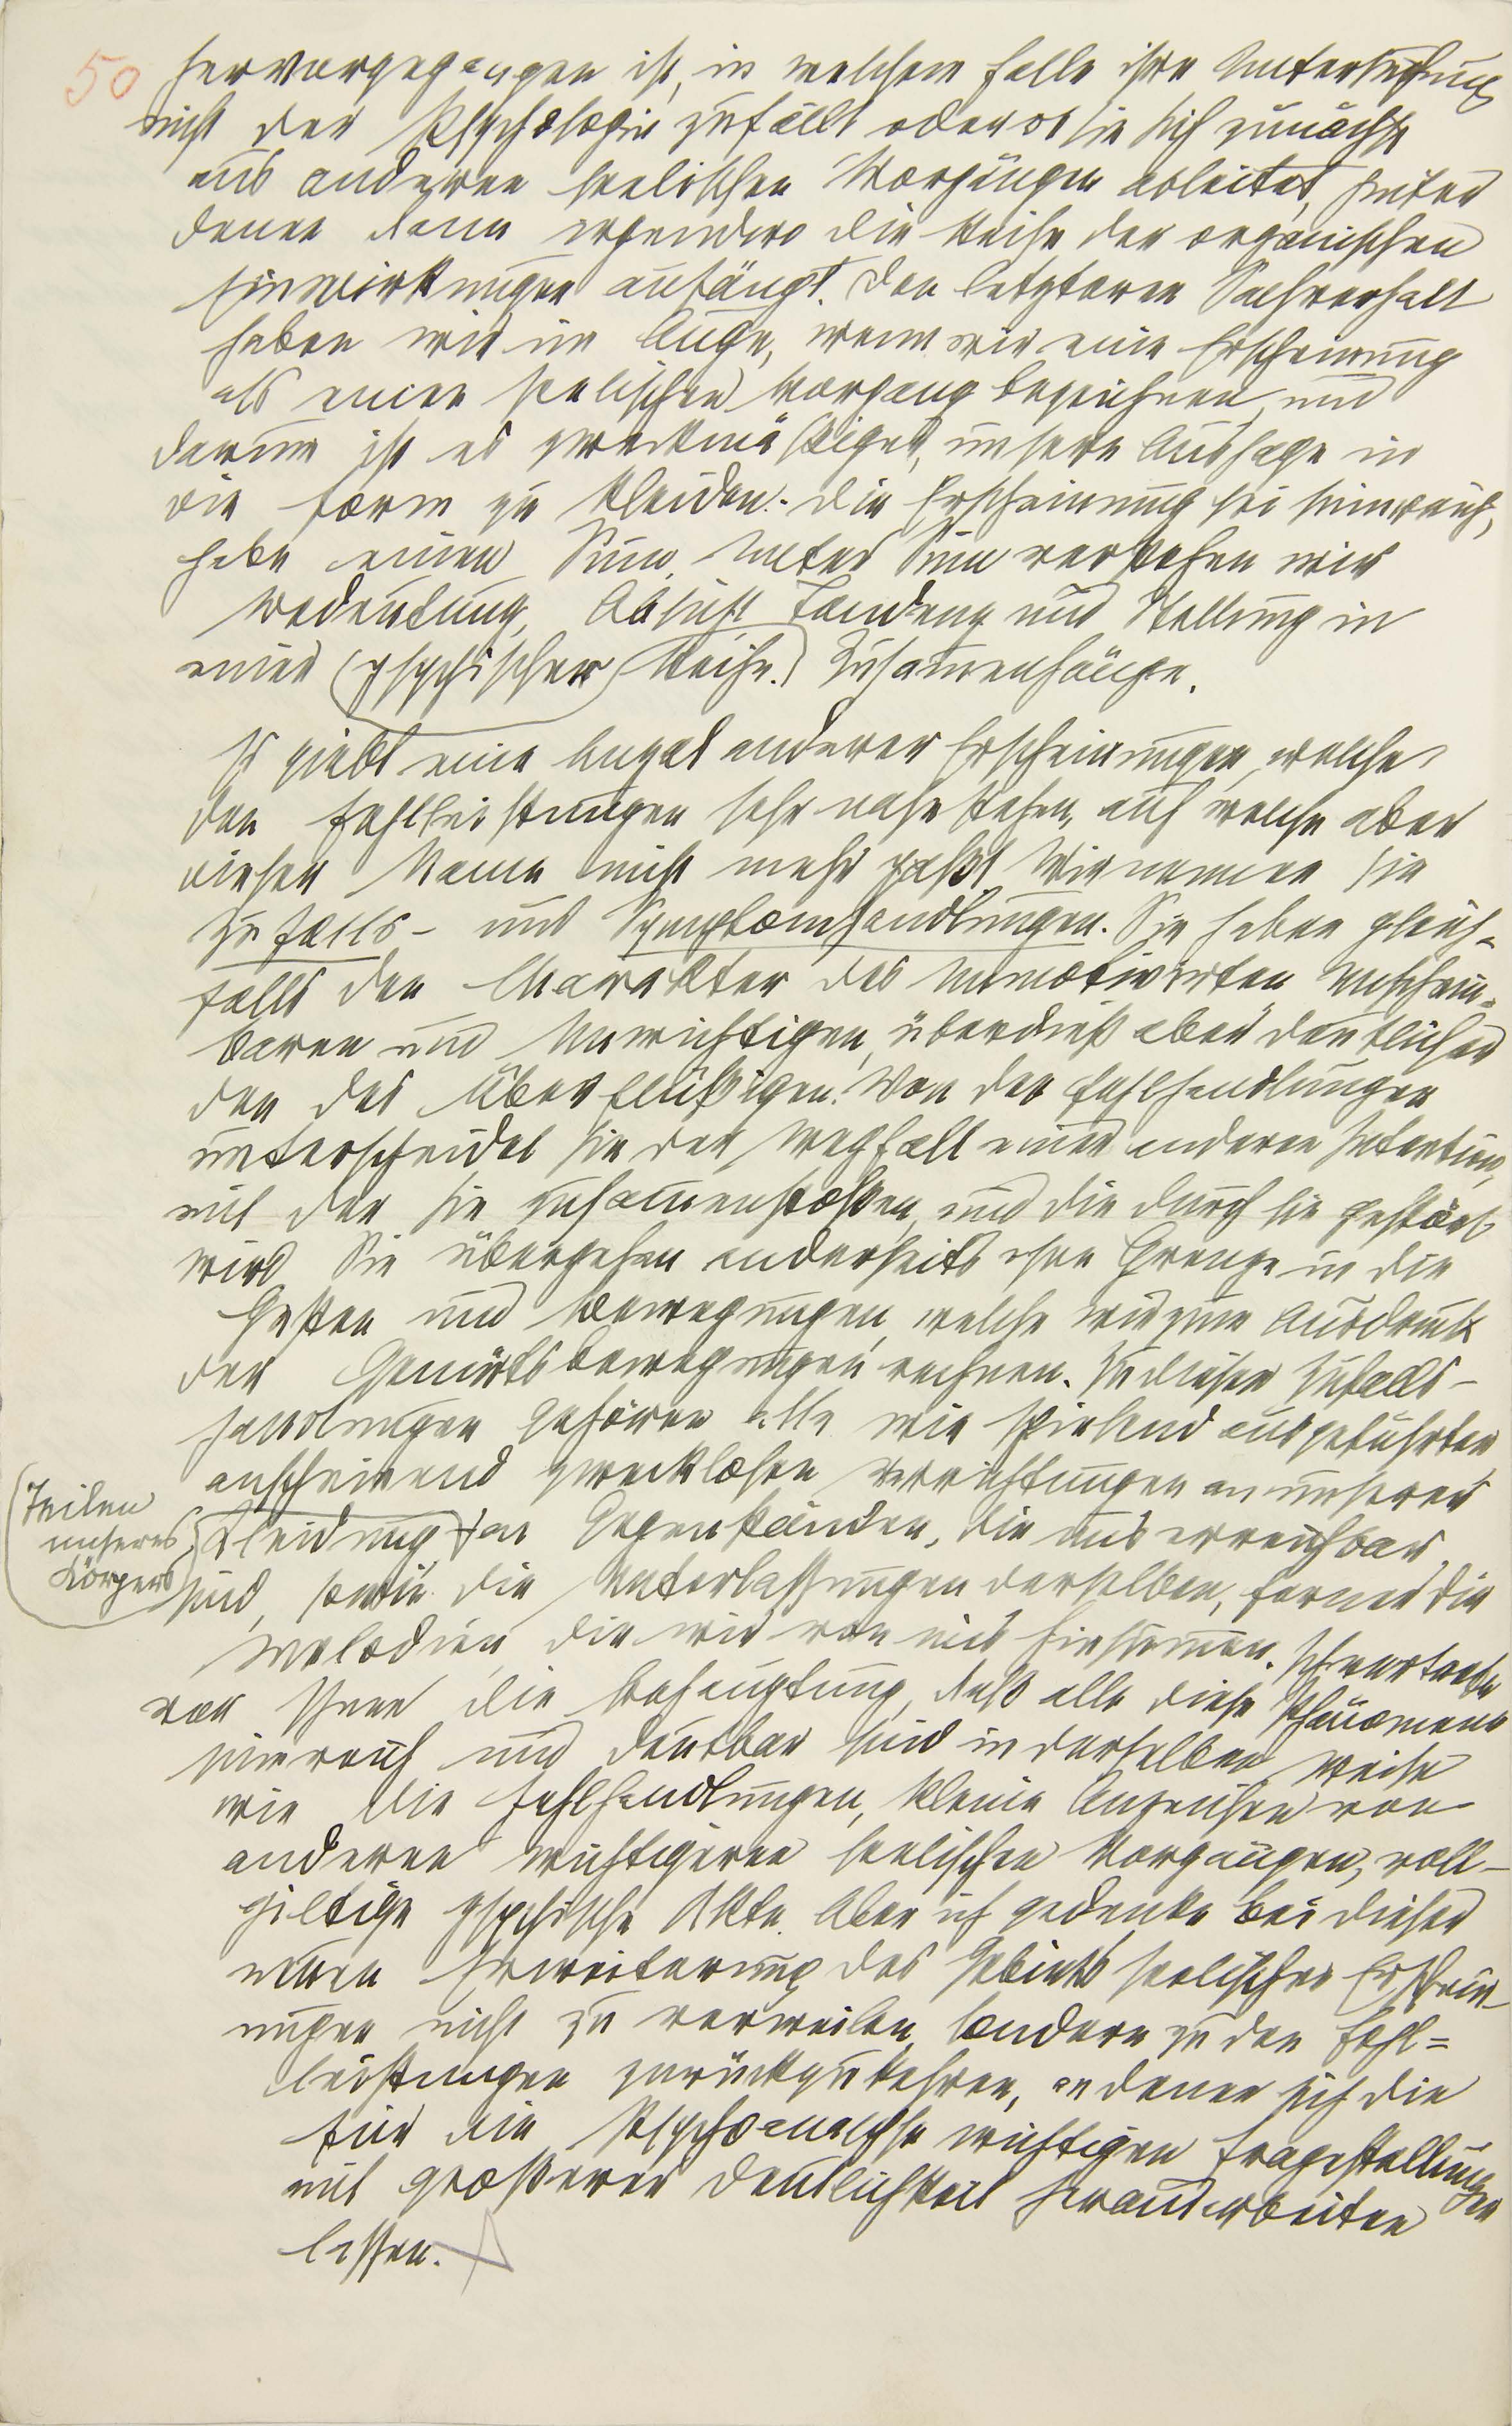 50
hervorgegangen ist, in welchem Falle ihre Untersuchung
nicht der Psychologie zufällt oder ob sie sich zunächst
aus anderen seelischen Vorgängen ableitet, hinter
denen dann irgendwo die Reihe der organischen
Einwirkungen anfängt. Den letzteren Sachverhalt
haben wir im Auge, wenn wir eine Erscheinung
als einen seelischen Vorgang bezeichnen, und
darum ist es zweckmäßiger, unsere Aussage in
die Form zu kleiden: die Erscheinung sei sinnreich,
habe einen Sinn. Unter Sinn verstehen wir
Bedeutung, Absicht, Tendenz und Stellung in
einer (psychischer) Reihe) Zusamenhänge.
Es giebt eine Anzal anderer Erscheinungen, welche
den Fehlleistungen sehr nahe stehen, auf welche aber
dieser Name nicht mehr paßt. Wir nennen sie
Zufalls- und Symptomhandlungen. Sie haben gleich=
falls den Charakter des Unmotivirten, Unschein=
baren und Unwichtigen, überdieß aber deutlicher
den des Überflüßigen. Von den Fehlhandlungen
unterscheidet sie der Wegfall einer anderen Intention,
mit der sie zusamenstoßen, und die durch sie gestört
wird. Sie übergehen anderseits ohne Grenze in die
Gesten und Bewegungen, welche wir zum Ausdruck
der Gemütsbewegungen rechnen. Zu diesen Zufalls-
handlungen gehören alle wie spielend ausgeführten,
anscheinend zwecklosen Verrichtungen an unserer
Kleidung, an Gegenständen, die uns erreichbar
(Teilen
unseres
Körpers)
sind, sowie die Unterlassungen derselben, ferner die
Melodien, die wir vor uns hinsumen. Ich vertrete
vor Ihnen die Behauptung, daß alle diese Phänomene
sinnreich und deutbar sind in derselben Weise
wie die Fehlhandlungen, kleine Anzeichen von
anderen wichtigeren seelischen Vorgängen, voll-
giltige psychische Akte. Aber ich gedenke bei dieser
neuen Erweiterung des Gebiets seelischer Erschein-
ungen nicht zu verweilen, sondern zu den Fehl=
leistungen zurückzukehren, an denen sich die
für die Psychoanalyse wichtigen Fragestellungen
mit großerer Deutlichkeit herausarbeiten
lassen.